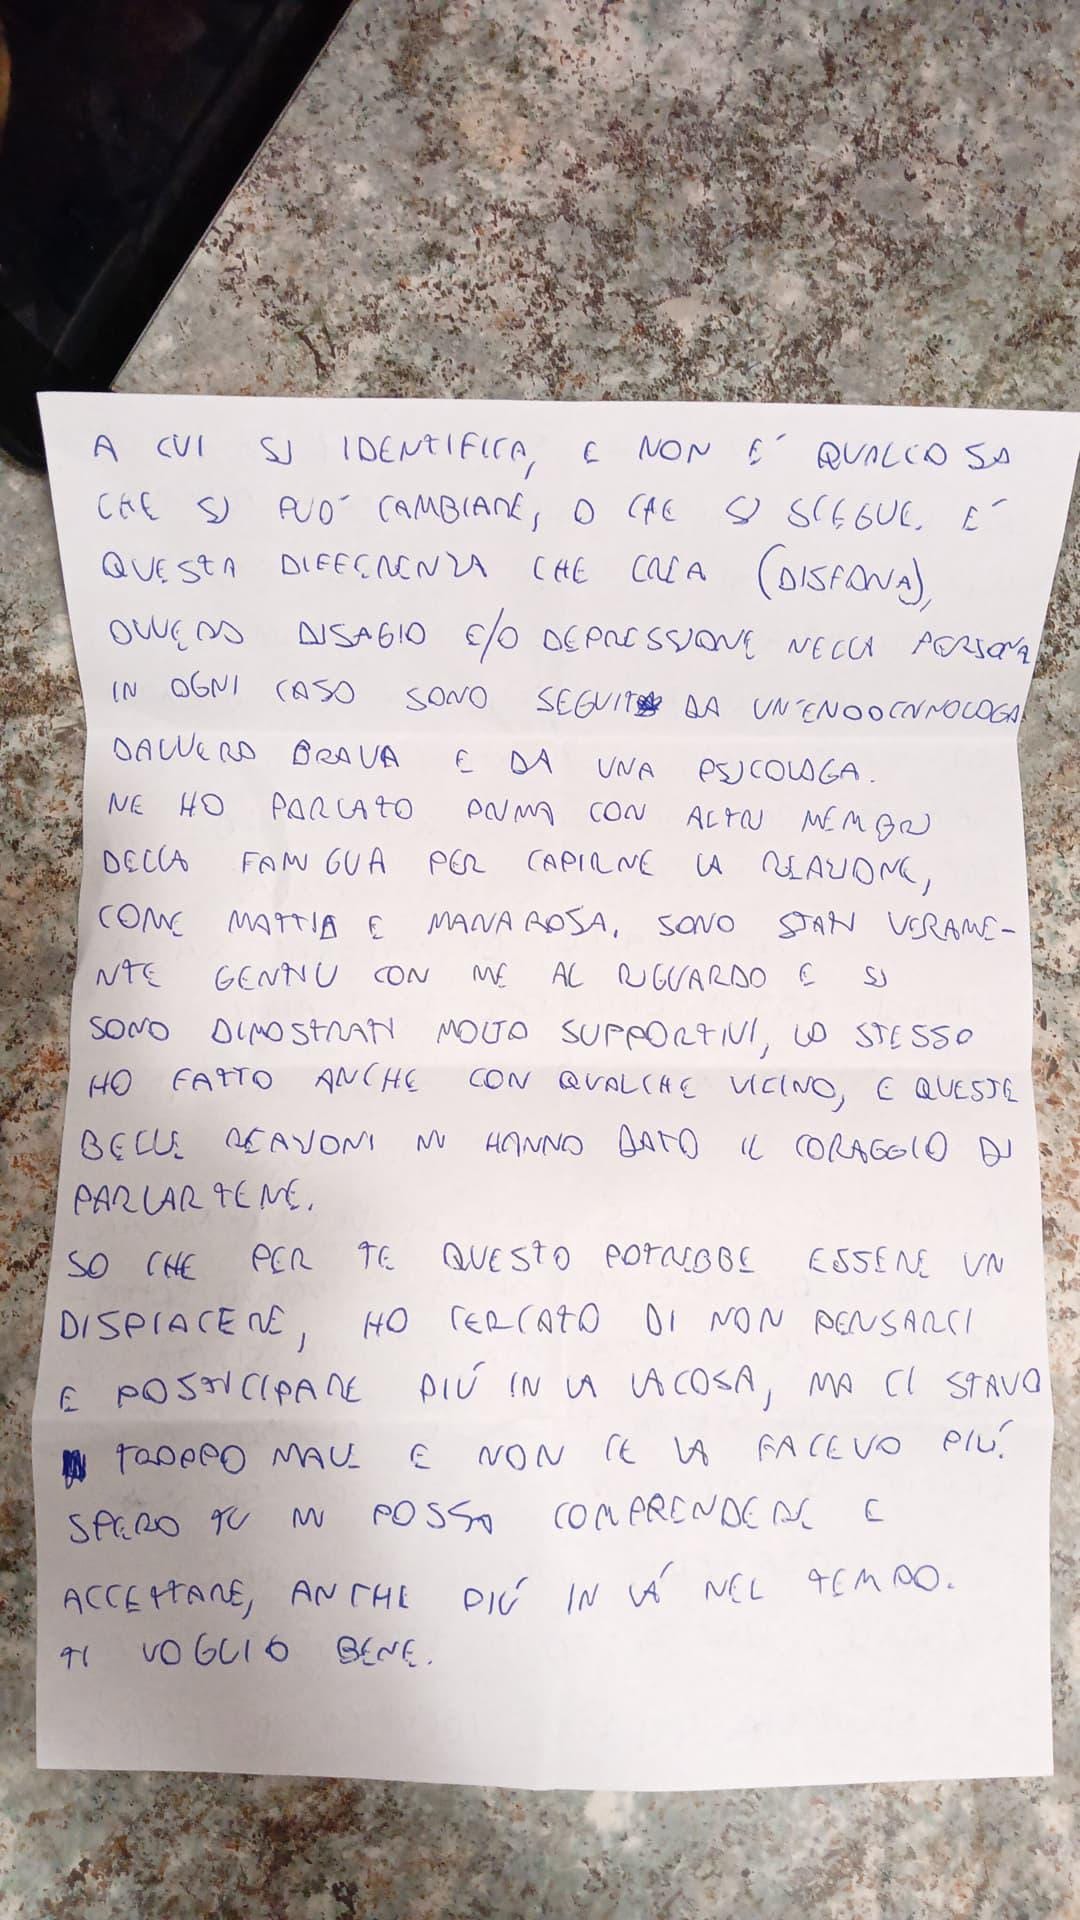 A CUI SI IDENTIFICA, E NON E' QUALCOSA
CHE SI PUO' CAMBIARE, O CHE SI SCEGUE. E'
QUESTA DIFFERENZA CHE CREA (DISFORIA),
OVVERO DISAGIO E/O DEPRESSIONE NELLA PERSONA
IN OGNI CASO SONO SEGUIT DA UN'ENDOCRINOLOGA
DAVVERO BRAVA E DA UNA PSICOLOGA.
NE HO PARLATO PRIMA CON ALTRI MEMBRI
DELLA FAMIGLIA PER CAPIRNE LA REAZIONE,
COME MATTIA E MARIAROSA. SONO STATI VERAME-
NTE GENTILI CON ME AL RIGUARDO E SI
SONO DIMOSTRATI MOLTO SUPPORTIVI, LO STESSO
HO FATTO ANCHE CON QUALCHE VICINO, E QUESTE
BELLE REAZIONI MI HANNO DATO IL CORAGGIO DI
PARLARTENE.
SO CHE PER TE QUESTO POTREBBE ESSERE UN
DISPIACERE, HO CERCATO DI NON PENSARCI
E POSTICIPARE PIÚ IN LA LA COSA, MA CI STAVO
TROPPO MALE E NON CE LA FACEVO PIÚ.
SPERO TU MI POSSA COMPRENDERE E
ACCETTARE, ANCHE PIÚ IN LÁ NEL TEMPO.
TI VOGLIO BENE.